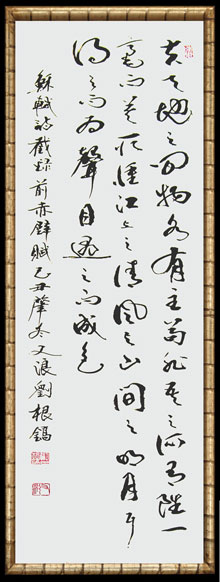 夫天地之間物各有主苟非吾之所有雖一
毫而莫取惟江上之清風與山間之明月耳
得之而為聲目遇之而成色
蘇軾詩截錄前赤壁賦己丑肇冬又浪劉根鎬